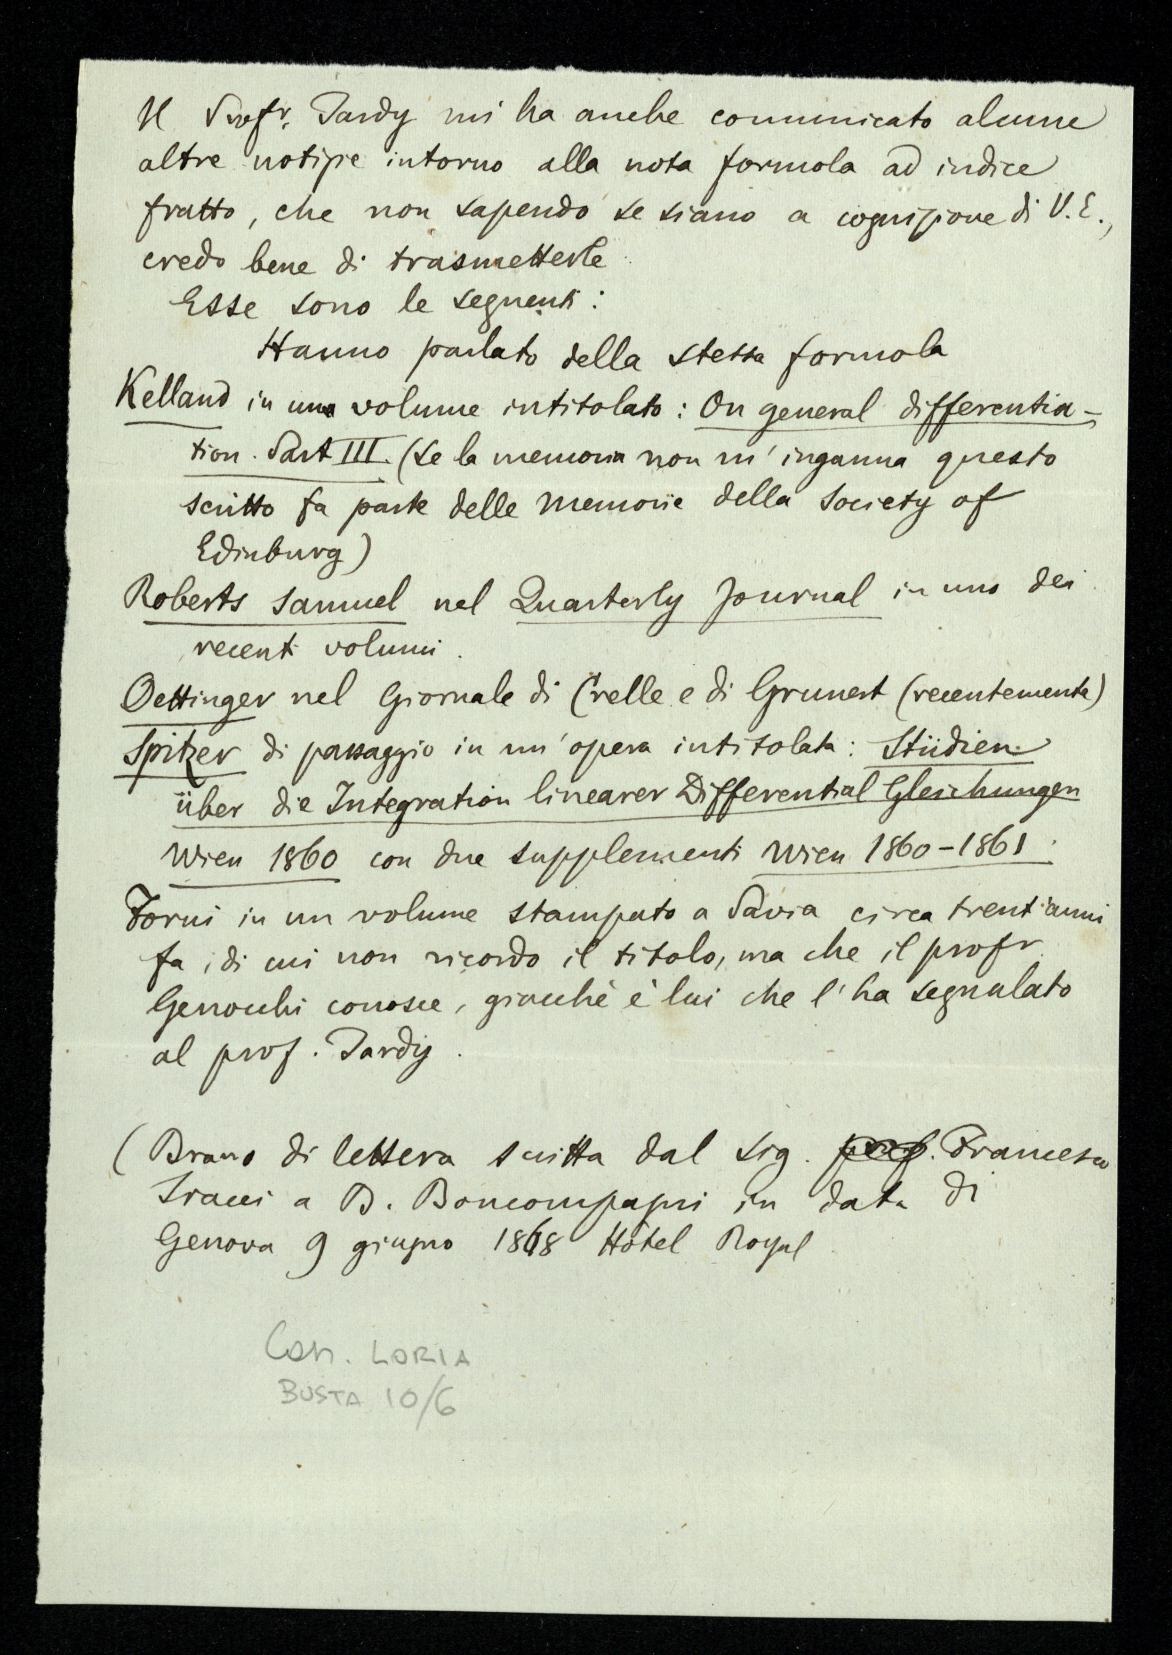 Il Profr. Tardy mi ha anche comunicato alcune
altre notizie intorno alla nota formola ad indice
fratto, che non sapendo se siano a cognizione di V. E.,
credo bene di trasmetterle
Esse sono le seguenti:
Hanno parlato della stessa formola
Kelland in un volume intitolato: On general differentia-
tion. Part III. (se la memoria non m'inganna questo
scritto fa parte delle Memorie della Society of
Edinburg)
Roberts Samuel nel Quarterly Journal in uno dei
recenti volumi.
Oettinger nel Giornale di Crelle e di Grunert (recentemente)
Spitzer di passaggio in un'opera intitolata: Stüdien
über die Integration linearer Differential Gleichungen
Wien 1860 con due supplementi Wien 1860-1861.
Torni in un volume stampato a Pavia circa trent'anni
fa, di cui non ricordo il titolo, ma che il profr.
Genocchi conosce, giacchè è lui che l'ha segnalato
al prof. Tardy.
(Brano di lettera scritta dal Sig. prof. Francesco
a B. Boncompagni in data di
Genova 9 giugno 1868 Hôtel Royal
Con. LORIA
BUSTA 10/6